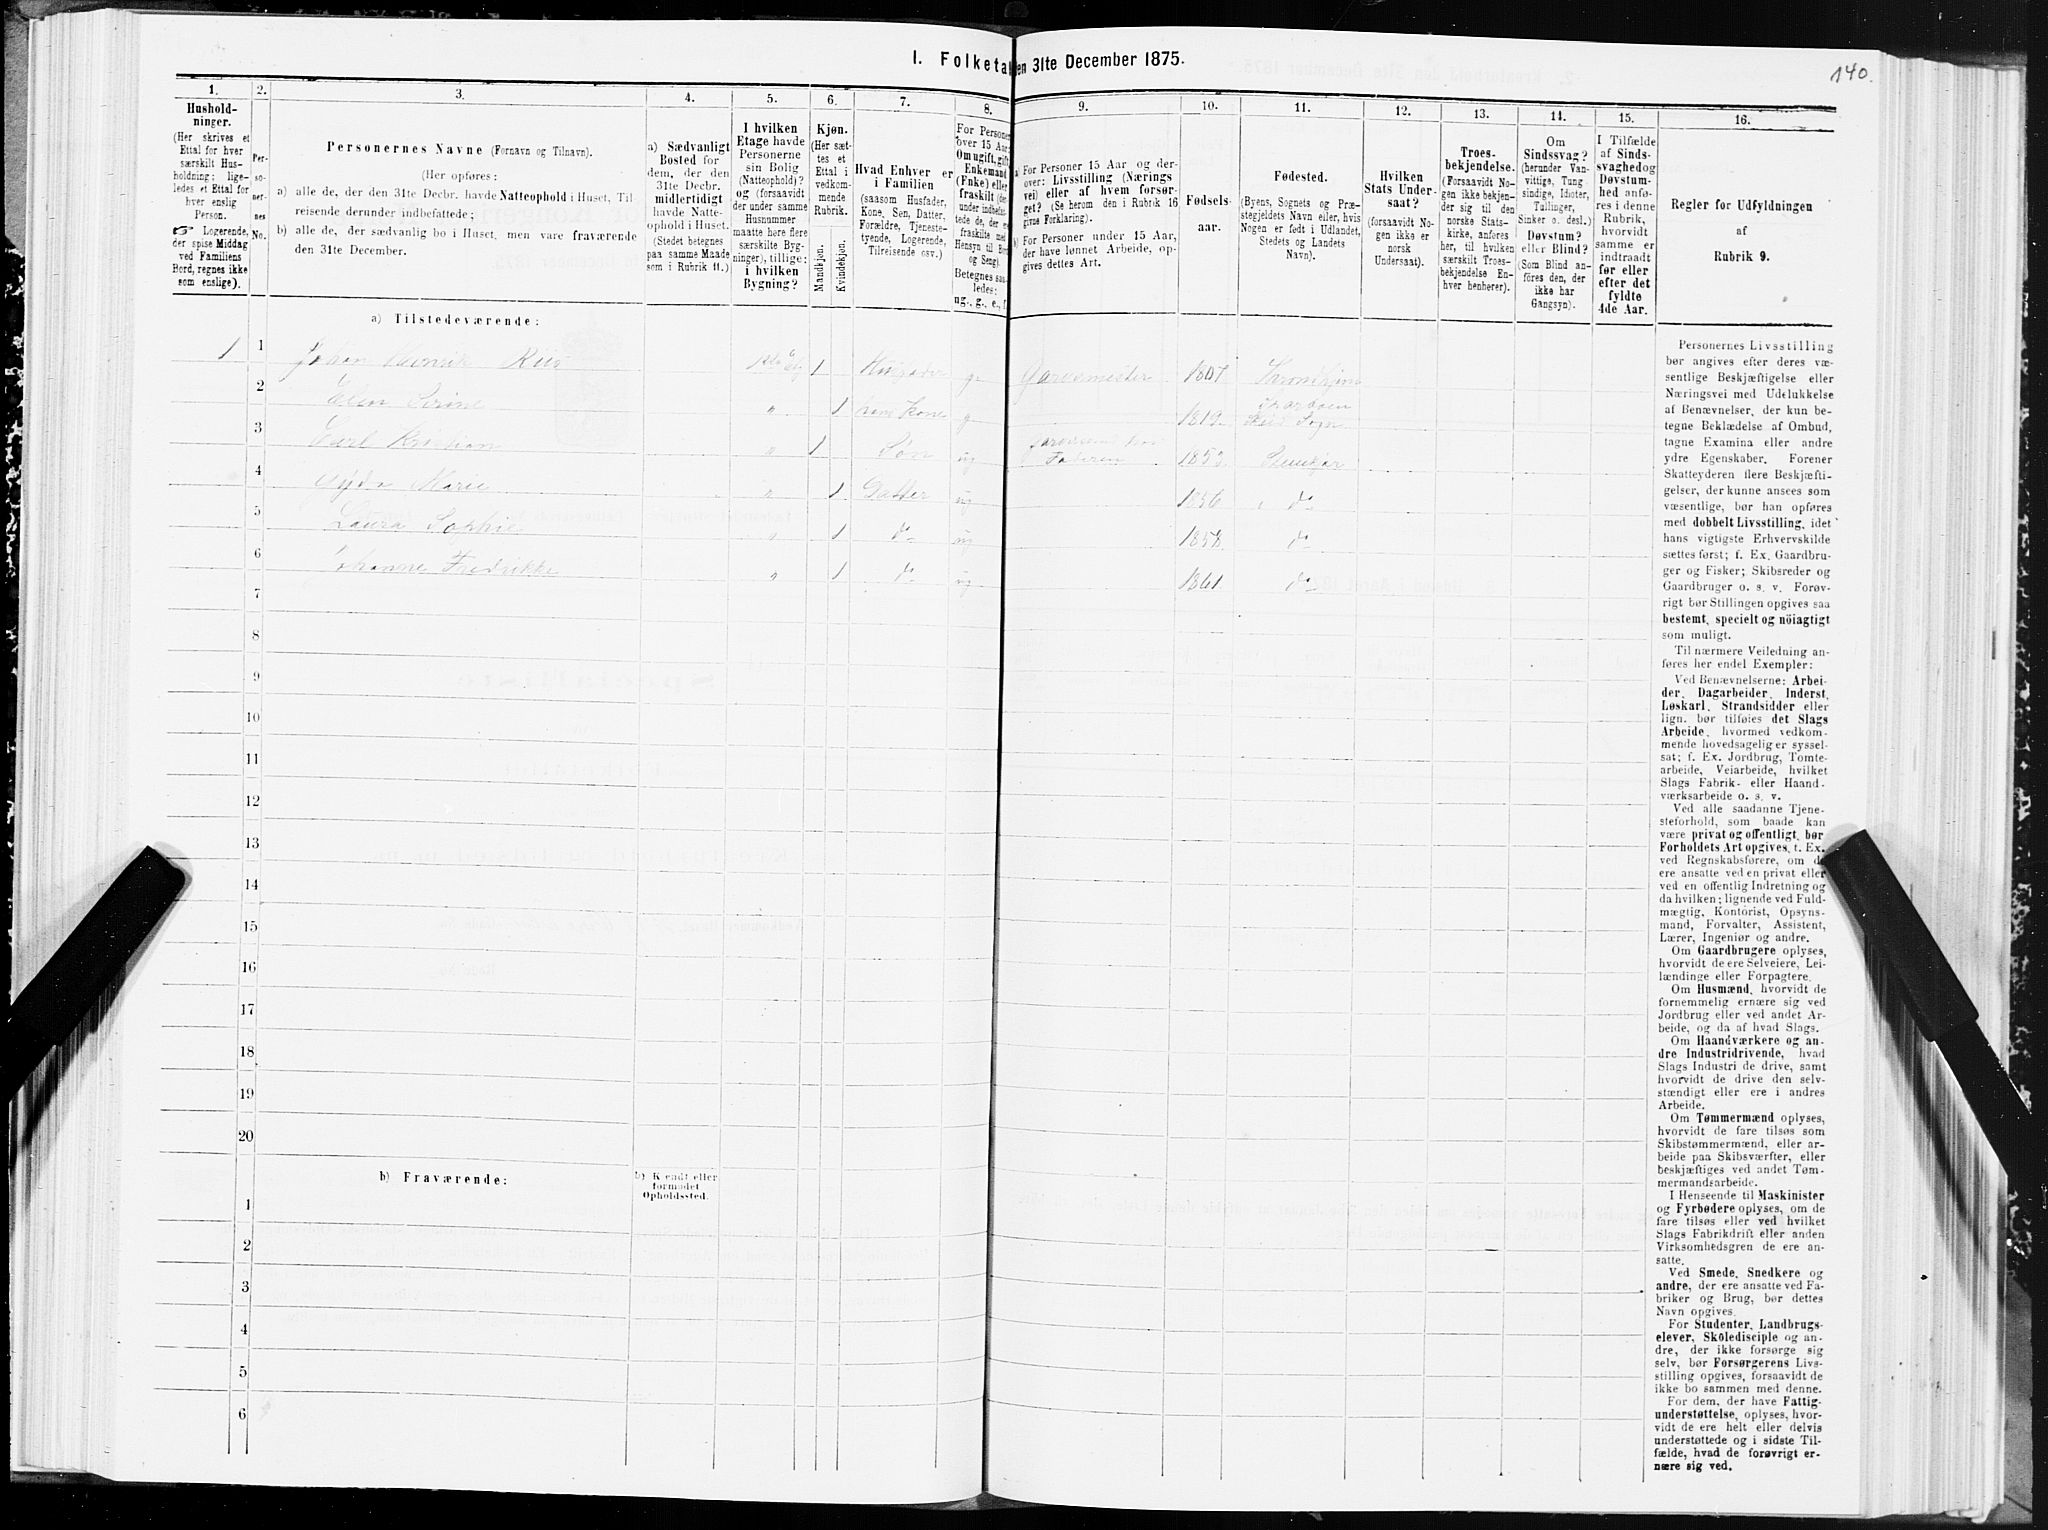 I. Folketa en 31te December 1875.
140.
1.
Hushold-
ninger.
(Her skrives et
Ettal for hver
særskilt Hus-
holdning; lige-
ledes et Ettal for
hver enslig
Person.
☞ Logerende,
der spise Middag
ved Familiens
Bord, regnes ikke
som enslige).
2.
Per-
so-
ner-
nes
No.
3.
Personernes Navne (Fornavn og Tilnavn).
(Her opføres:
a) alle de, der den 31te Decbr. havde Natteophold i Huset, Til-
reisende derunder indbefattede;
b) alle de, der sædvanlig bo i Huset, men vare fraværende
den 31te December.
4.
a) Sædvanligt
Bosted for
dem, der den
31te Decbr.
midlertidigt
havde Natte-
ophold i Huset.
(Stedet betegnes
paa samme Maade
som i Rubrik 11.)
5.
I hvilken
Etage havde
Personerne
sin Bolig
(Natteophold)?
og (forsaavidt
der under samme
Husnummer
maatte høre flere
særskilte Byg-
ninger), tillige:
i hvilken
Bygning?
6.
Kjøn.
(Her sæt-
tes et
Ettal i
vedkom-
mende
Rubrik.
Mandkjøn.
Kvindekjøn.
7.
Hvad Enhver er
i Familien
(saasom Husfader,
Kone, Søn, Datter,
Forældre, Tjeneste-
tyende, Logerende,
Tilreisende osv.)
8.
For Personer
over 15 Aar:
Om ugift, gift,
Enkemand
(Enke) eller
fraskilt (der-
under indbefat-
tede de, der ere
fraskilte med
Hensyn til Bord
og Seng).
Betegnes saa-
ledes:
ug., g., e., f.
9.
a) For Personer 15 Aar og der-
over: Livsstilling (Nærings-
vei) eller af hvem forsør-
get? (Se herom den i Rubrik 16
givne Forklaring).
b) For Personer under 15 Aar,
der have lønnet Arbeide, op-
gives dettes Art.
10.
Fødsels-
aar.
11.
Fødested.
(Byens, Sognets og Præ-
stegjeldets Navn eller, hvis
Nogen er født i Udlandet,
Stedets og Landets
Navn).
12.
Hvilken
Stats Under-
saat?
(forsaavidt No-
gen ikke er
norsk
Undersaat).
13.
Troes-
bekjendelse.
(Forsaavidt No-
gen ikke bekjen-
der sig til den
norske Stats-
kirke, anføres
her, til hvilken
særskilt Troes-
bekjendelse En-
hver henhører).
14.
Om
Sindssvag?
(herunder Van-
vittige, Tung-
sindige, Idioter,
Tullinger,
Sinker o. desl.)
Døvstum?
eller Blind?
(Som Blind an-
føres den, der
ikke har
Gangsyn).
15.
I Tilfælde
af Sinds-
svaghed og
Døvstum-
hed anfø-
res i denne
Rubrik,
hvorvidt
samme er
indtraadt
før eller
efter det
fyldte
4de Aar.
16.
Regler for Udfyldningen
af
Rubrik 9.
a) Tilstedeværende:
1 1 Johan Henrik Riis 1 Husfader g. Garvemester 1807 Trondhjem
2 Elen Serine " 1 hans Kone g 1819
3 Carl Kristian " 1 Søn ug Faderen 185 Stenkjær
4 Gyda Marie " 1 Datter ug 1856 do
5 Laura Sophie " 1 do ug 1858 do
6 Johanne Fredrikke " 1 do ug 1861. do
7
8
9
10
11
12
13
14
15
16
17
18
19
20
b) Fraværende:
b) Kjendt eller
formodet
Opholdssted.
1
2
3
4
5
6
Personernes Livsstilling
bør angives efter deres væ-
sentlige Beskjæftigelse eller
Næringsvei med Udelukkelse
af Benævnelser, der kun be-
tegne Beklædelse af Ombud,
tagne Examina eller andre
ydre Egenskaber. Forener
Skatteyderen flere Beskjæfti-
gelser, der kunne ansees som
væsentlige, bør han opføres
med dobbelt Livsstilling, idet
hans vigtigste Erhvervskilde
sættes først; f. Ex. Gaardbru-
ger og Fisker; Skibsreder og
Gaardbruger o. s. v. Forøv-
rigt bør Stillingen opgives saa
bestemt, specielt og nöiagtigt
som muligt.
Til nærmere Veiledning an-
føres her endel Exempler:
Ved Benævnelserne: Arbei-
der, Dagarbeider, Inderst,
Løskarl, Strandsidder eller
lign. bør tilføies det Slags
Arbeide, hvormed vedkom-
mende hovedsagelig er syssel-
sat; f. Ex. Jordbrug, Tomte-
arbeide, Veiarbeide, hvilket
Slags Fabrik- eller Haand-
værksarbeide o. s. v.
Ved alle saadanne Tjene-
steforhold, som baade kan
være privat og offentligt, bør
Forholdets Art opgives, f. Ex.
ved Regnskabsførere, om de
ere ansatte ved en privat eller
ved en offentlig Indretning og
da hvilken; lignende ved Fuld-
mægtig, Kontorist, Opsyns-
mand, Forvalter, Assistent,
Lærer, Ingeniør og andre.
Om Gaardbrugere oplyses,
hvorvidt de ere Selveiere, Lei-
lændinge eller Forpagtere.
Om Husmænd, hvorvidt de
fornemmelig ernære sig ved
Jordbrug eller ved andet Ar-
beide, og da af hvad Slags.
Om Haandværkere og an-
dre Industridrivende, hvad
Slags Industri de drive, samt
hvorvidt de drive den selv-
stændigt eller ere i andres
Arbeide.
Om Tømmermænd oplyses,
hvorvidt de fare tilsøs som
Skibstømmermænd, eller ar-
beide paa Skibsværfter, eller
beskjæftiges ved andet Tøm-
mermandsarbeide.
I Henseende til Maskinister
og Fyrbødere oplyses, om de
fare tilsøs eller ved hvilket
Slags Fabrikdrift eller anden
Virksomhedsgren de ere an-
satte.
Ved Smede, Snedkere og
andre, der ere ansatte ved Fa-
briker og Brug, bør dettes
Navn opgives.
For Studenter, Landbrugs-
elever, Skoledisciple og an-
dre, der ikke forsørge sig
selv, bør Forsørgerens Livs-
stilling opgives, forsaavidt de
ikke bo sammen med denne.
For dem, der have Fattig-
understøttelse, oplyses, hvor-
vidt de ere helt eller delvis
understøttede og i sidste Til-
fælde, hvad de forøvrigt er-
nære sig ved.